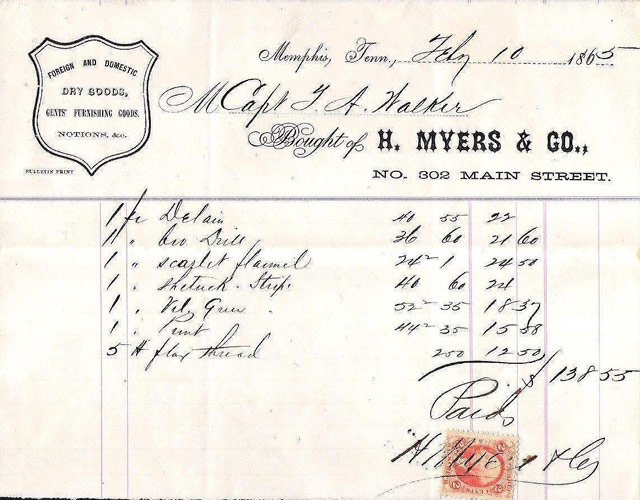 FOREIGN AND DOMESTIC
DRY GOODS,
GENTS' FURNISHING GOODS.
NOTIONS, &c.
BULLETIN PRINT
Memphis, Tenn., Feby 10 1865
M Capt T. A. Walker
Bought of H. MYERS & CO.,
NO. 302 MAIN STREET.
1 Delain 40 55 22
1 " bro Drill 36 60 21 60
1 " scarlet flannel 24² 1 24 50
1 " Stripe 40 60 24
1 " 52² 35 18 37
1 " Print 44² 35 15 58
5 # flax thread 250 12 50
$ 138 55
Paid
H Myers & Co